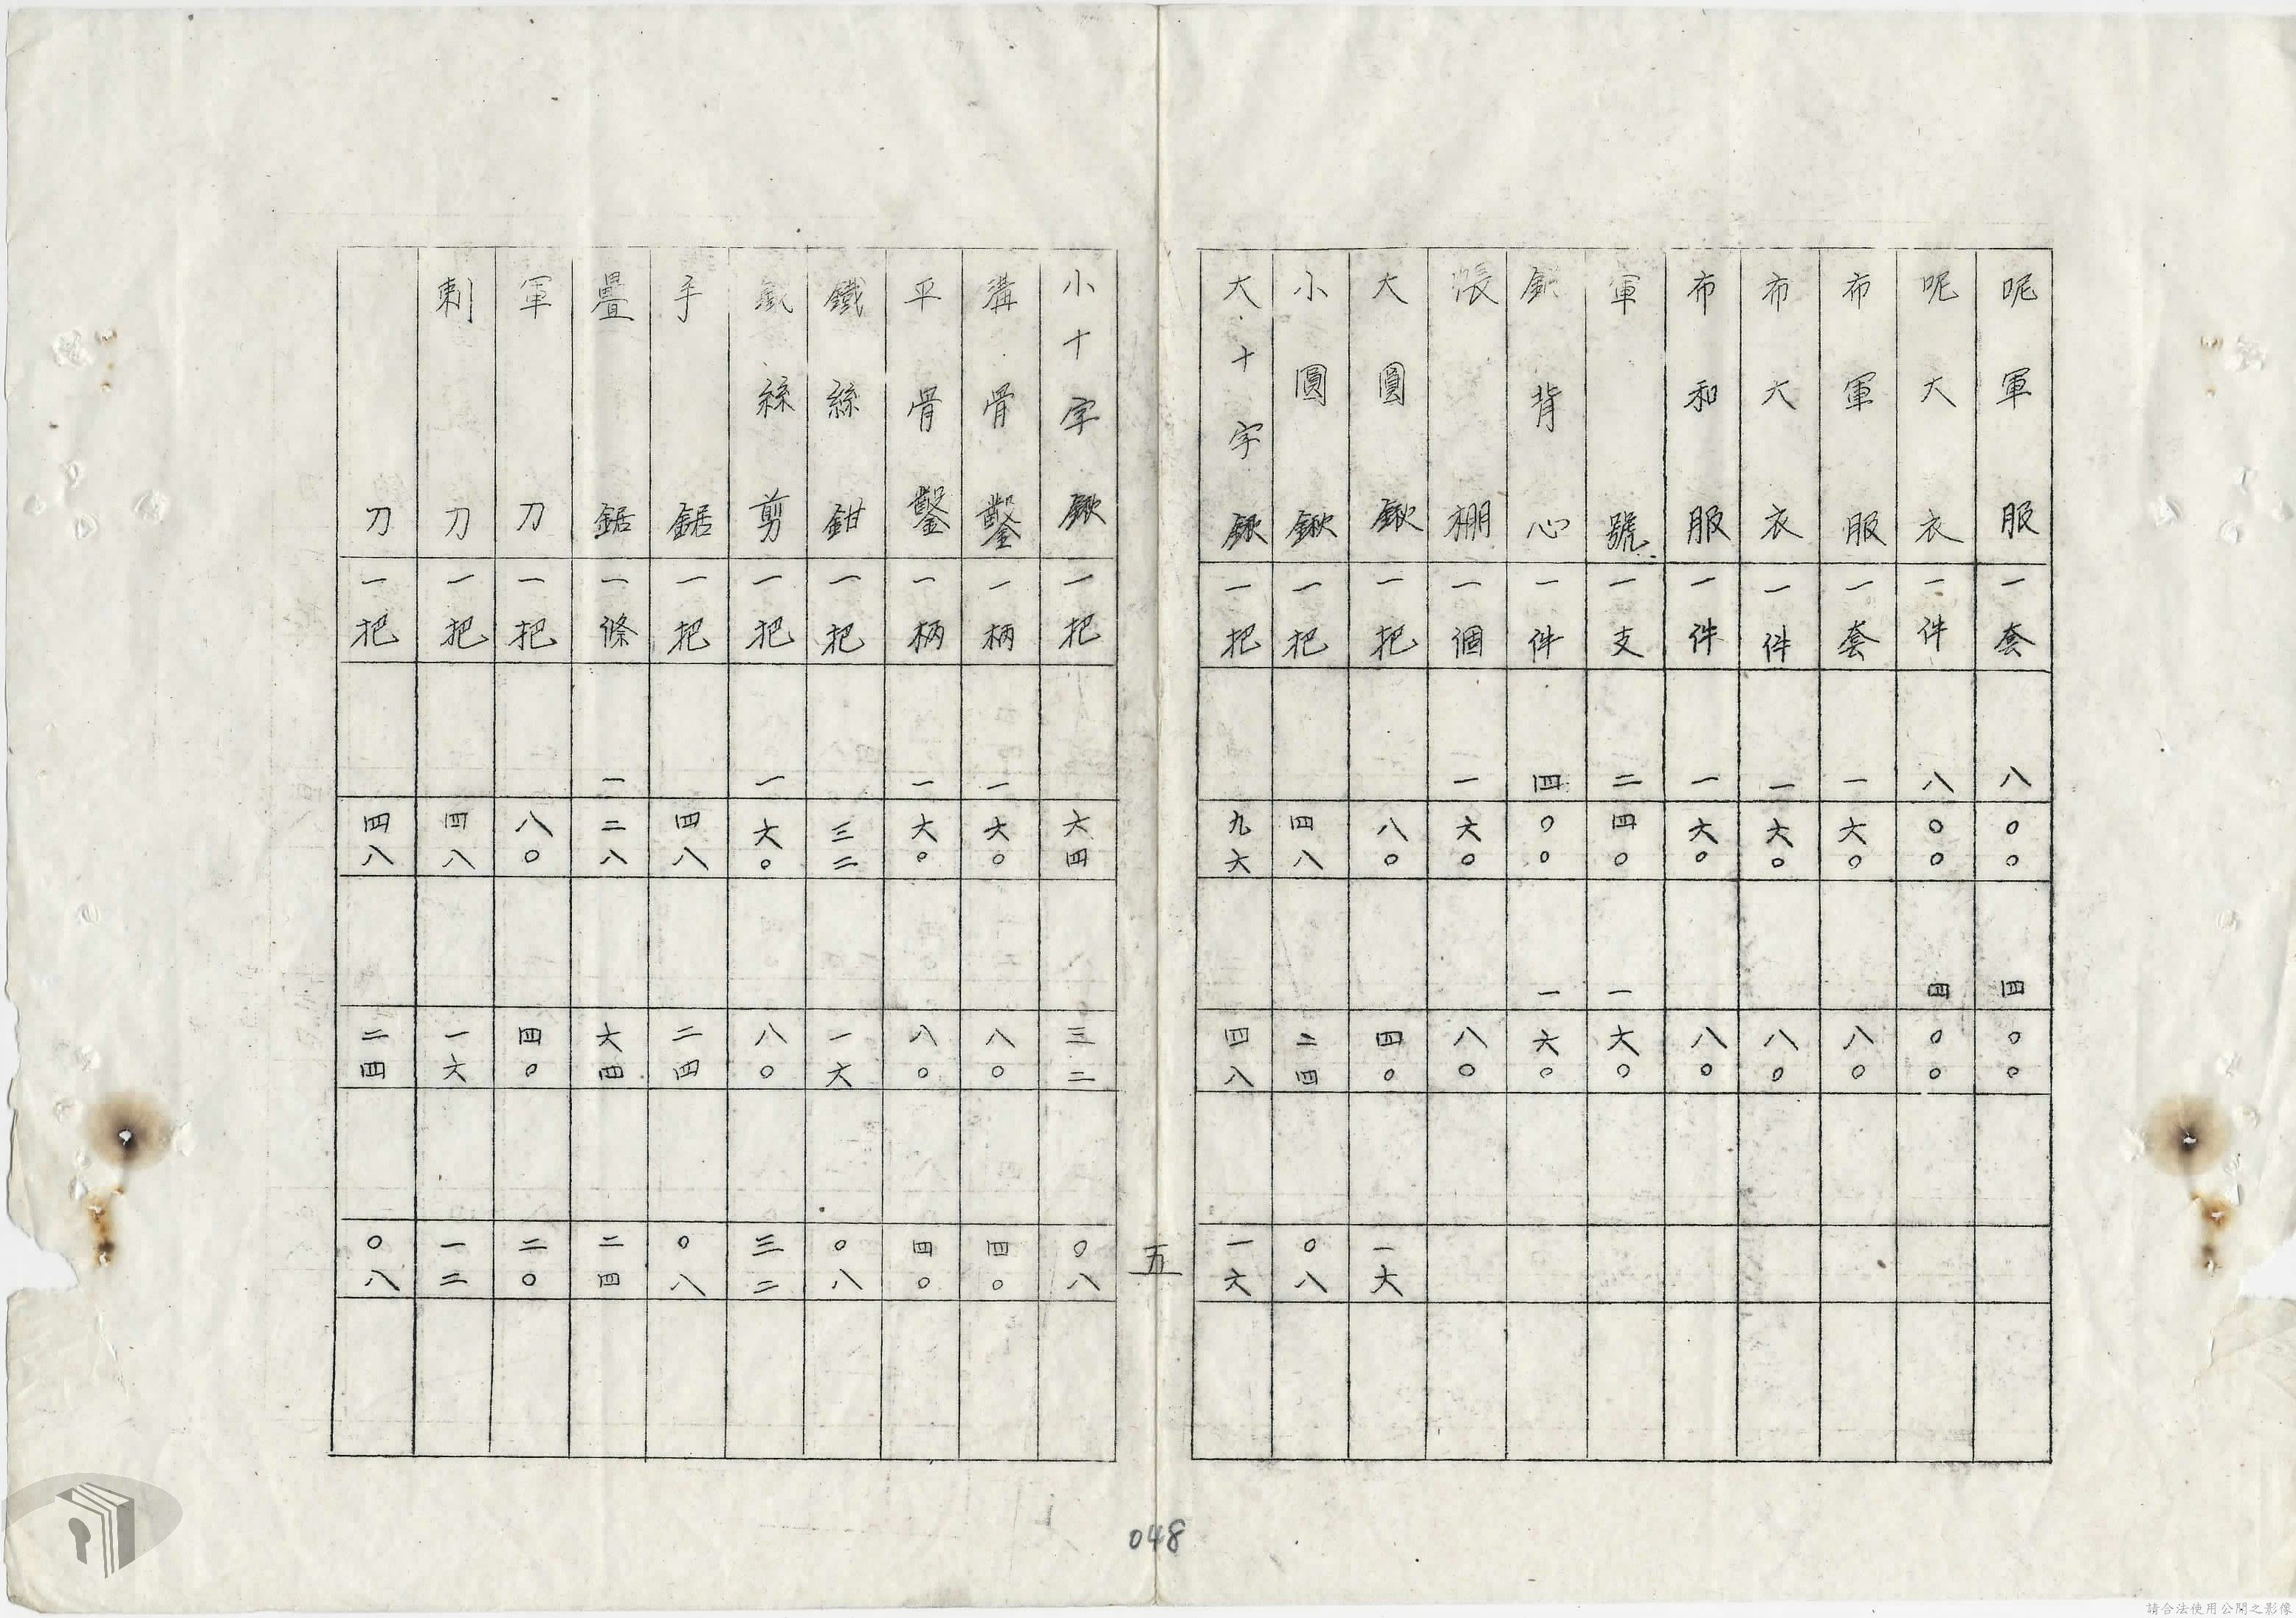 呢軍服 一套 八〇〇 四〇〇
呢大衣 一件 八〇〇 四〇〇
布軍服 一套 一六〇 八〇
布大衣 一件 一六〇 八〇
布和服 一件 一六〇 八〇
軍號 一支 二四〇 一六〇
背心 一件 四〇〇 一六〇
棚 一個 一六〇 八〇
大圓鍬 一把 八〇 四〇 一六
小圓鍬 一把 四八 二四 〇八
大十字鍬 一把 九六 四八 一六
五
小十字鍬 一把 六四 三二 〇八
溝骨鑿 一柄 一六〇 八〇 四〇
平骨鑿 一柄 一六〇 八〇 四〇
鐵絲鉗 一把 三二 一六 〇八
絲剪 一把 一六〇 八〇 三二
手鋸 一把 四八 二四 〇八
疊鋸 一條 一二八 六四 二四
軍刀 一把 八〇 四〇 二〇
刺刀 一把 四八 一六 一二
刀 一把 四八 二四 〇八
048
請合法使用公開之影像